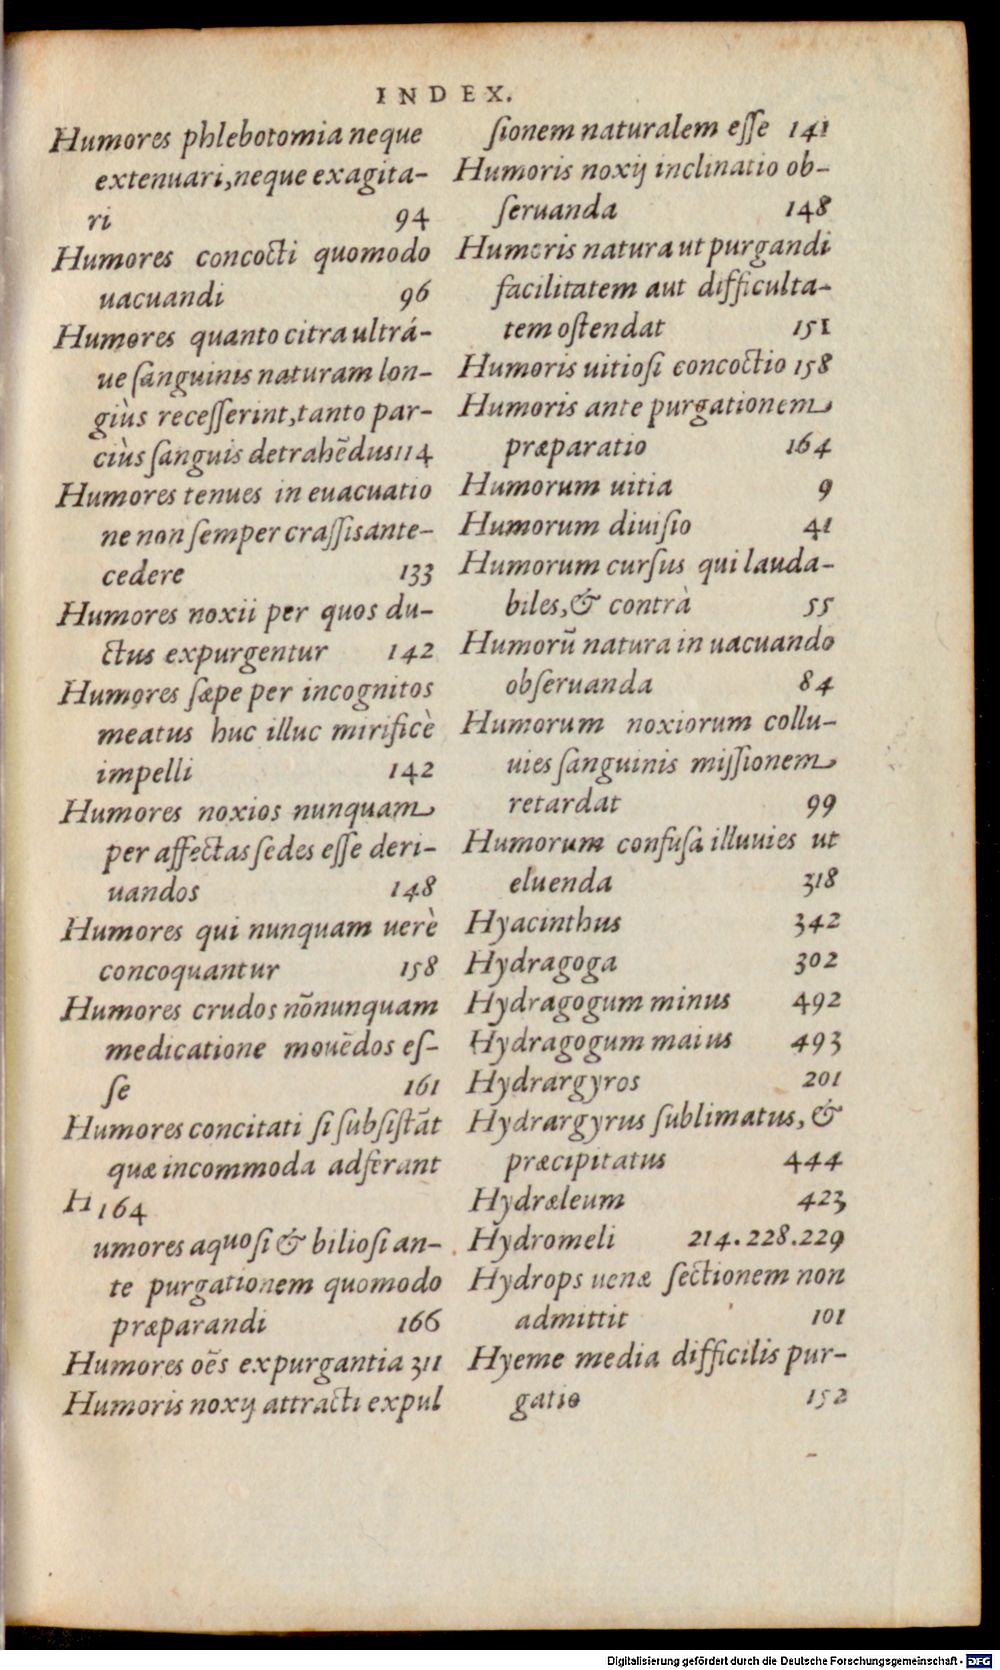 INDEX.
Humores phlebotomia neque
extenuari, neque exagita-
ri 94
Humores concocti quomodo
uacuandi 96
Humores quanto citra ultrá-
ue ſanguinis naturam lon-
giùs receſſerint, tanto par-
ciùs ſanguis detrahẽdus 114
Humores tenues in euacuatio
ne non ſemper craſſis ante-
cedere 133
Humores noxii per quos du-
ctus expurgentur 142
Humores ſæpe per incognitos
meatus huc illuc mirificè
impelli 142
Humores noxios nunquam
per affectas ſedes eſſe deri-
uandos 148
Humores qui nunquam uerè
concoquantur 158
Humores crudos nõnunquam
medicatione mouẽdos eſ-
ſe 161
Humores concitati ſi ſubſiſtãt
quæ incommoda adferant
H 164
umores aquoſi & bilioſi an-
te purgationem quomodo
præparandi 166
Humores oẽs expurgantia 311
Humoris noxij attracti expul
ſionem naturalem eſſe 141
Humoris noxij inclinatio ob-
ſeruanda 148
Humoris natura ut purgandi
facilitatem aut difficulta-
tem oſtendat 151
Humoris uitioſi concoctio 158
Humoris ante purgationem
præparatio 164
Humorum uitia 9
Humorum diuiſio 41
Humorum curſus qui lauda-
biles, & contrà 55
Humorũ natura in uacuando
obſeruanda 84
Humorum noxiorum collu-
uies ſanguinis miſſionem
retardat 99
Humorum confuſa illuuies ut
eluenda 318
Hyacinthus 342
Hydragoga 302
Hydragogum minus 492
Hydragogum maius 493
Hydrargyros 201
Hydrargyrus ſublimatus, &
præcipitatus 444
Hydræleum 423
Hydromeli 214. 228. 229
Hydrops uenæ ſectionem non
admittit 101
Hyeme media difficilis pur-
gatio 152
Digitalisierung gefördert durch die Deutsche Forschungsgemeinschaft - DFG